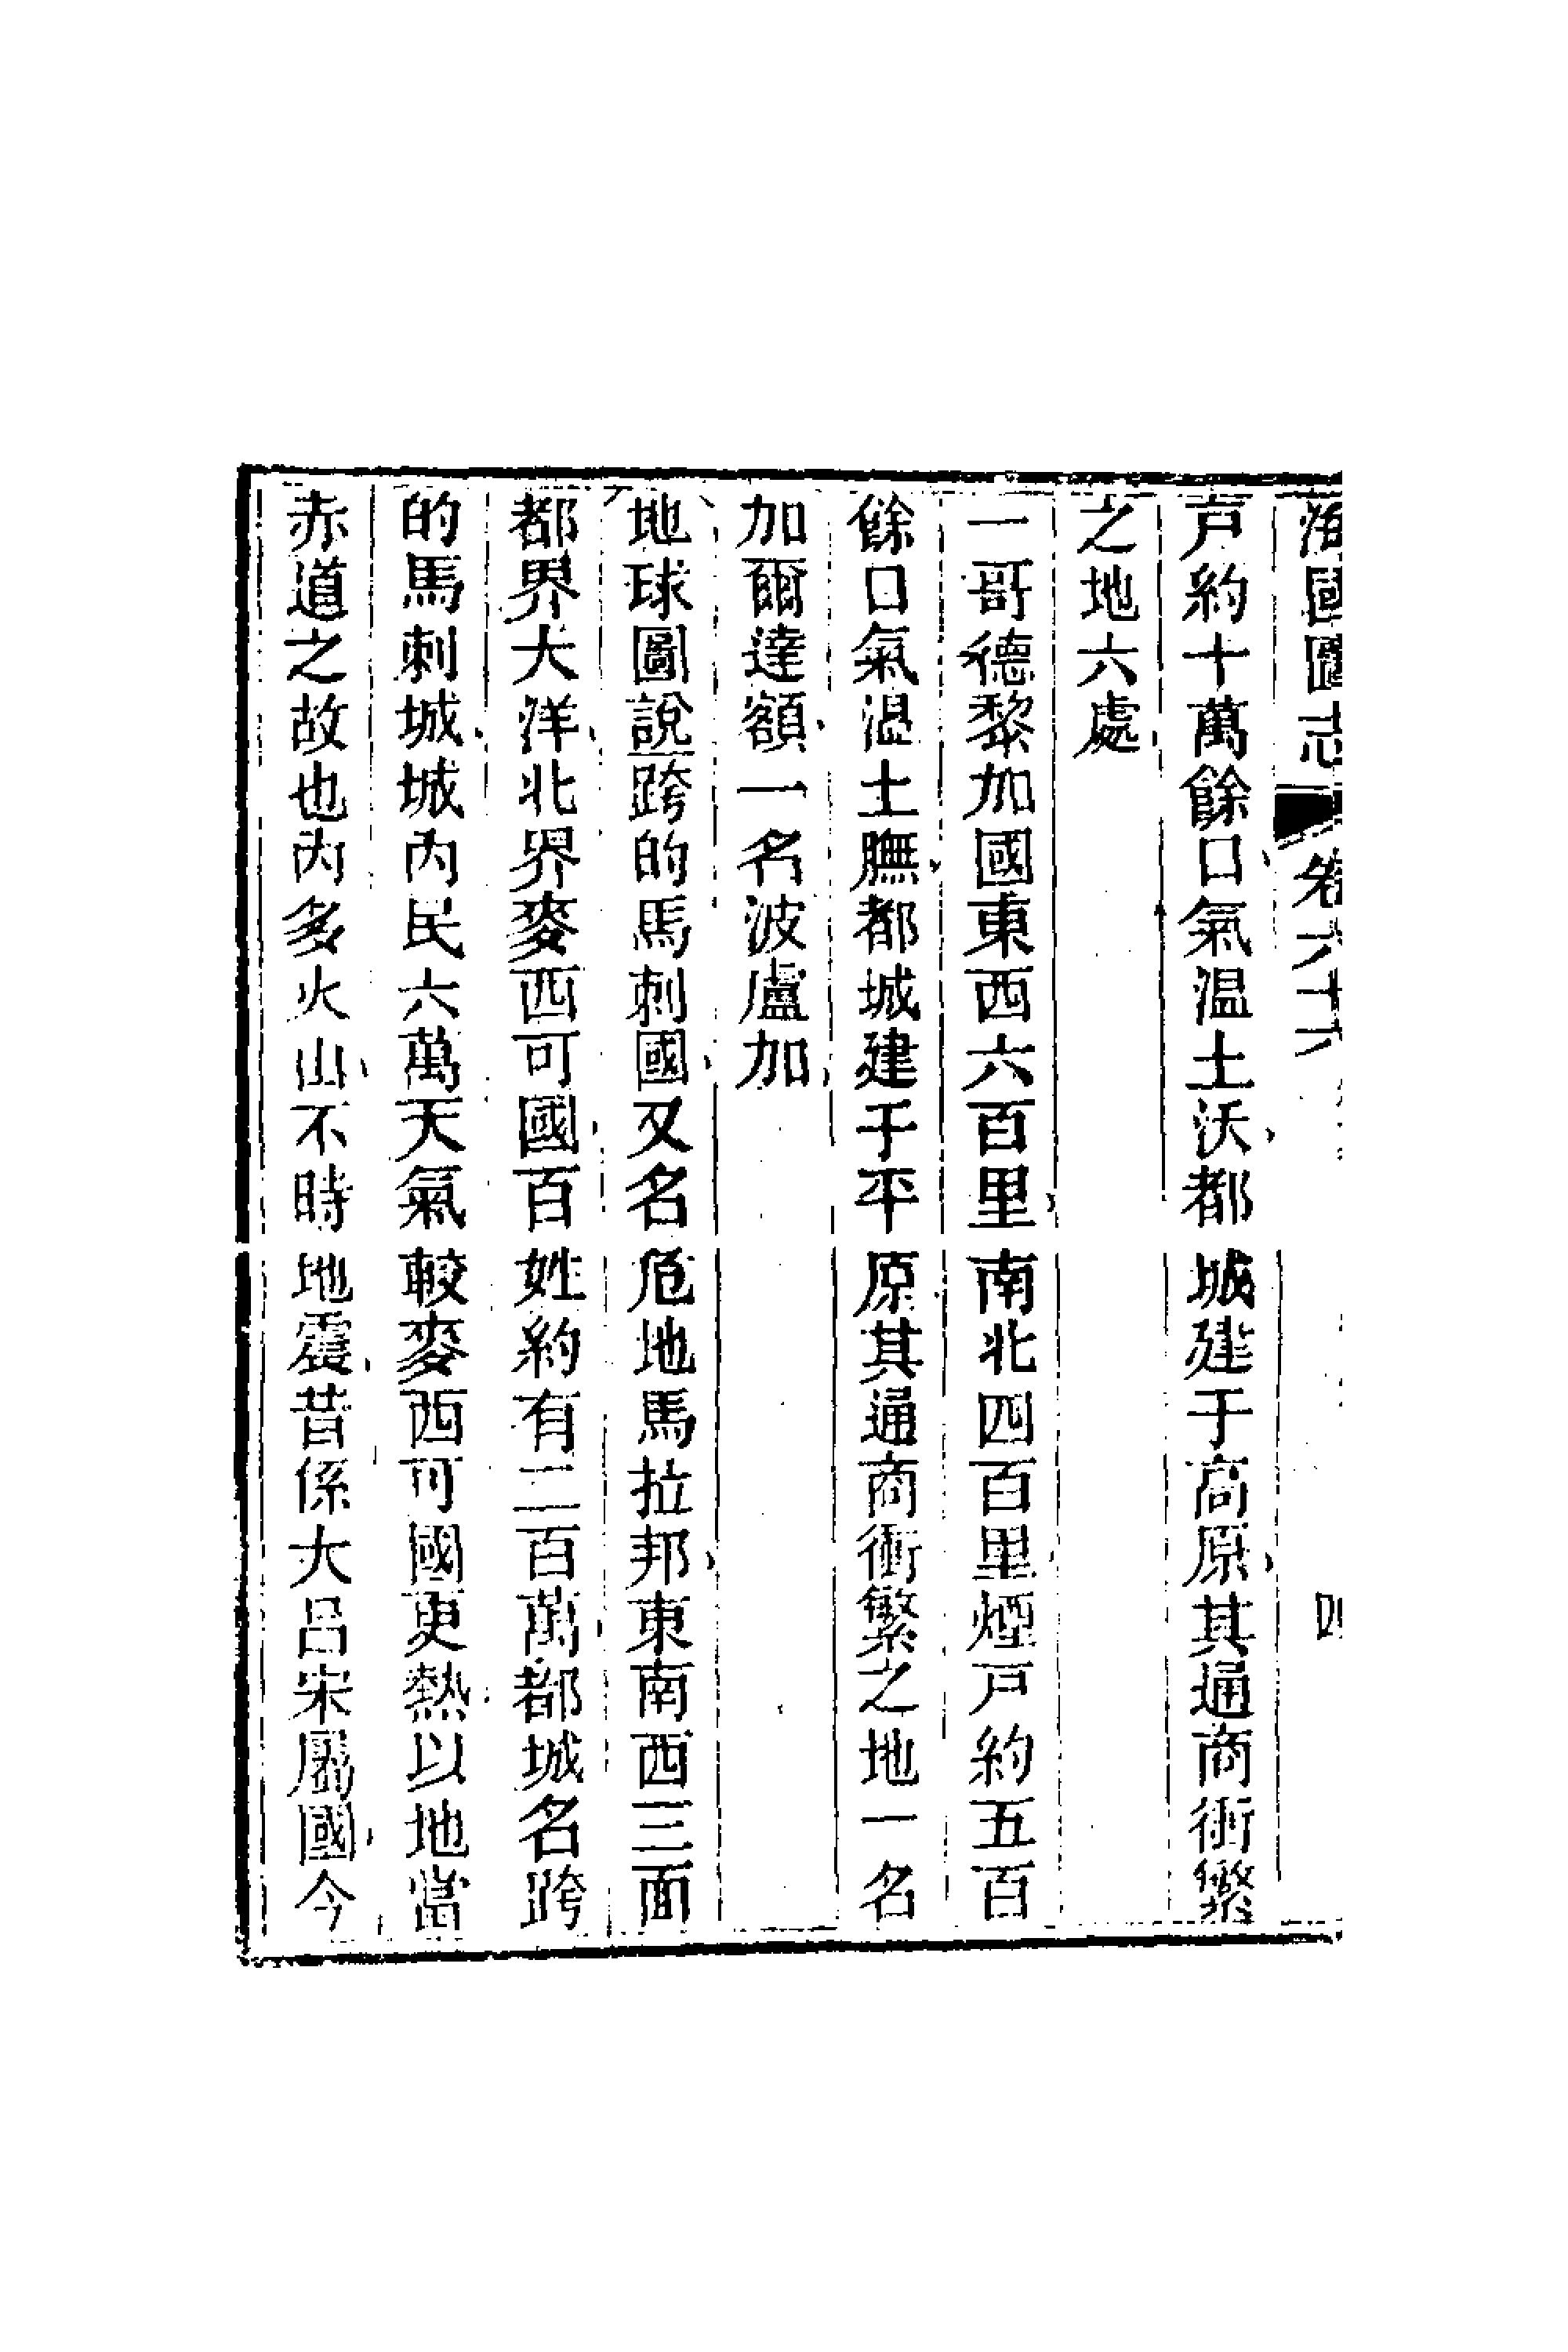 海國圖志 卷六十六 四
戸約十萬餘口氣温土沃都城建于高原其通商衝繁
之地六處
一哥德黎加國東西六百里南北四百里煙戸約五百
餘口氣温土膴都城建于平原其通商衝繁之地一名
加爾達額一名波盧加
地球圖說跨的馬刺國又名危地馬拉邦東南西三面
都界大洋北界麥西可國百姓約有二百萬都城名跨
的馬刺城城內民六萬天氣較麥西可國更熱以地當
赤道之故也內多火山不時地震昔係大呂宋屬國今